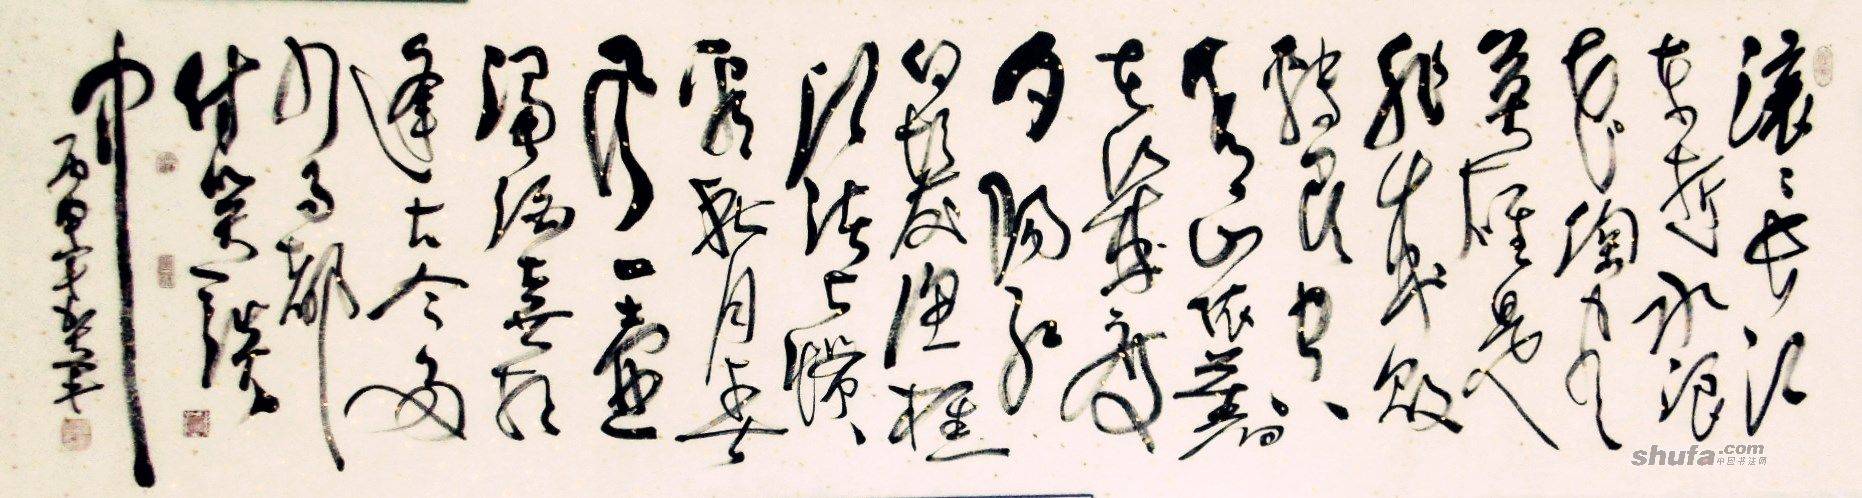 滚滚长江
东逝水浪
花淘尽
英雄是
非成败
转头空
青山依舊
在几度
夕阳红
白髮渔樵
江渚上惯
看秋月春
风一壶
濁酒喜相
逢古今多
少事都
付笑谈
中
丙申
shufa.com
中国书法网